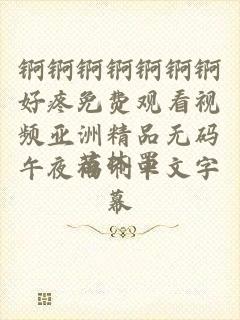 锕锕锕锕锕锕锕
好疼免费观看视
频亚洲精品无码
午夜福利中文字
幕